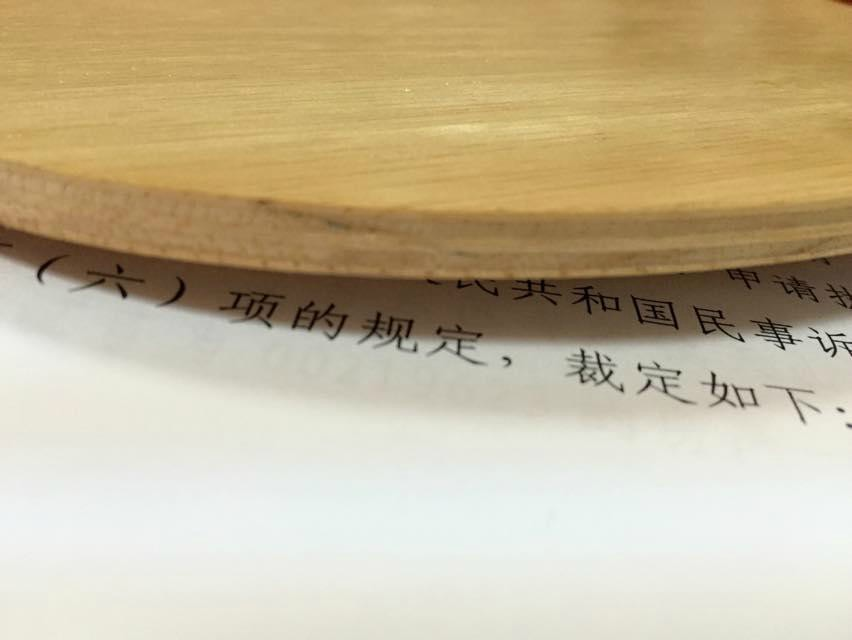 申请
民共和国民事诉
（六）项的规定，裁定如下：